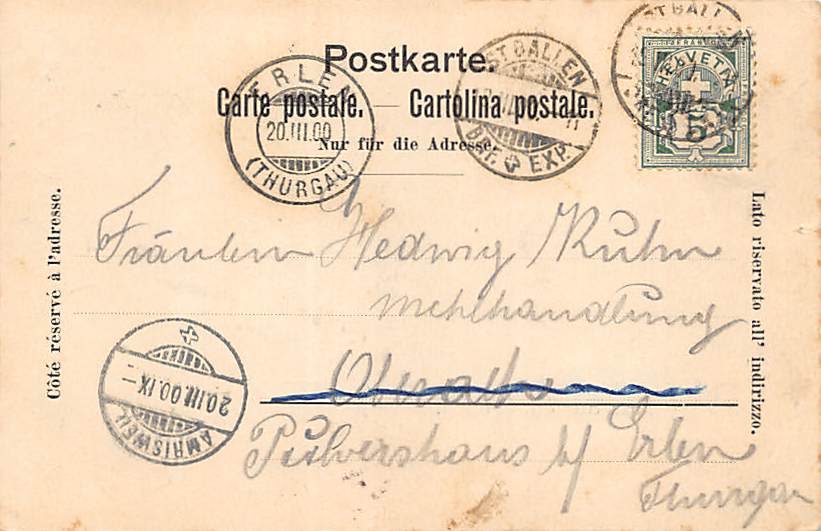 Postkarte.
Carte postale. — Cartolina postale.
Nur für die Adresse.
ERLEN
20.III.00
(THURGAU)
ST. GALLEN
BRF. EXP.
ST. GALLEN
HELVETIA
5
Côté réservé à l'adresse.
Lato riservato all' indirizzo.
Fräulein Hedwig Kuhn
Mehlhandlung
Pulvershaus b/ Erlen
Thurgau
20.III.00.IX-
AMRISWEIL